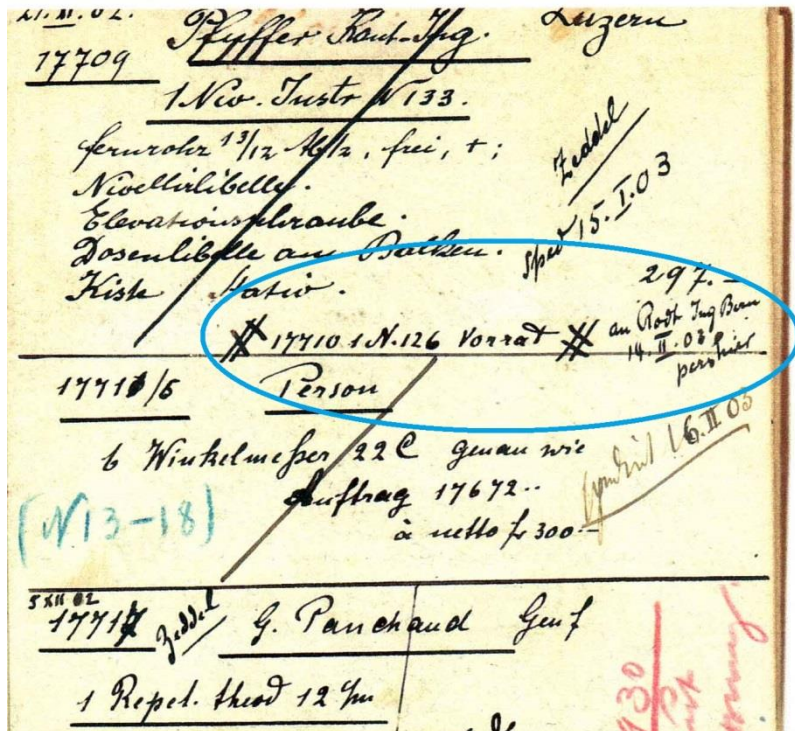 21.XI.02.
17709 Pfyffer Kant-Ing. Luzern
1 Niv. Instr N 133.
fernrohr 13/12 , frei, + ;
Nivellirlibelle.
Elevationsschraube.
Dosenlibelle am Balken.
Kiste Stativ.
Zeddel
Sped 15.I.03
297.-
17710 1 N. 126 Vorrat
an Rodt Ing Bern
14.II.03
per hier
1771/6 Person
6 Winkelmesser 22C genau wie
Auftrag 17672..
à netto fr 300.-
(N13-18)
spediert 16.II.03
5 XII 02
17717 Zeddel G. Panchaud Genf
1 Repet. theod 12 c/m
930